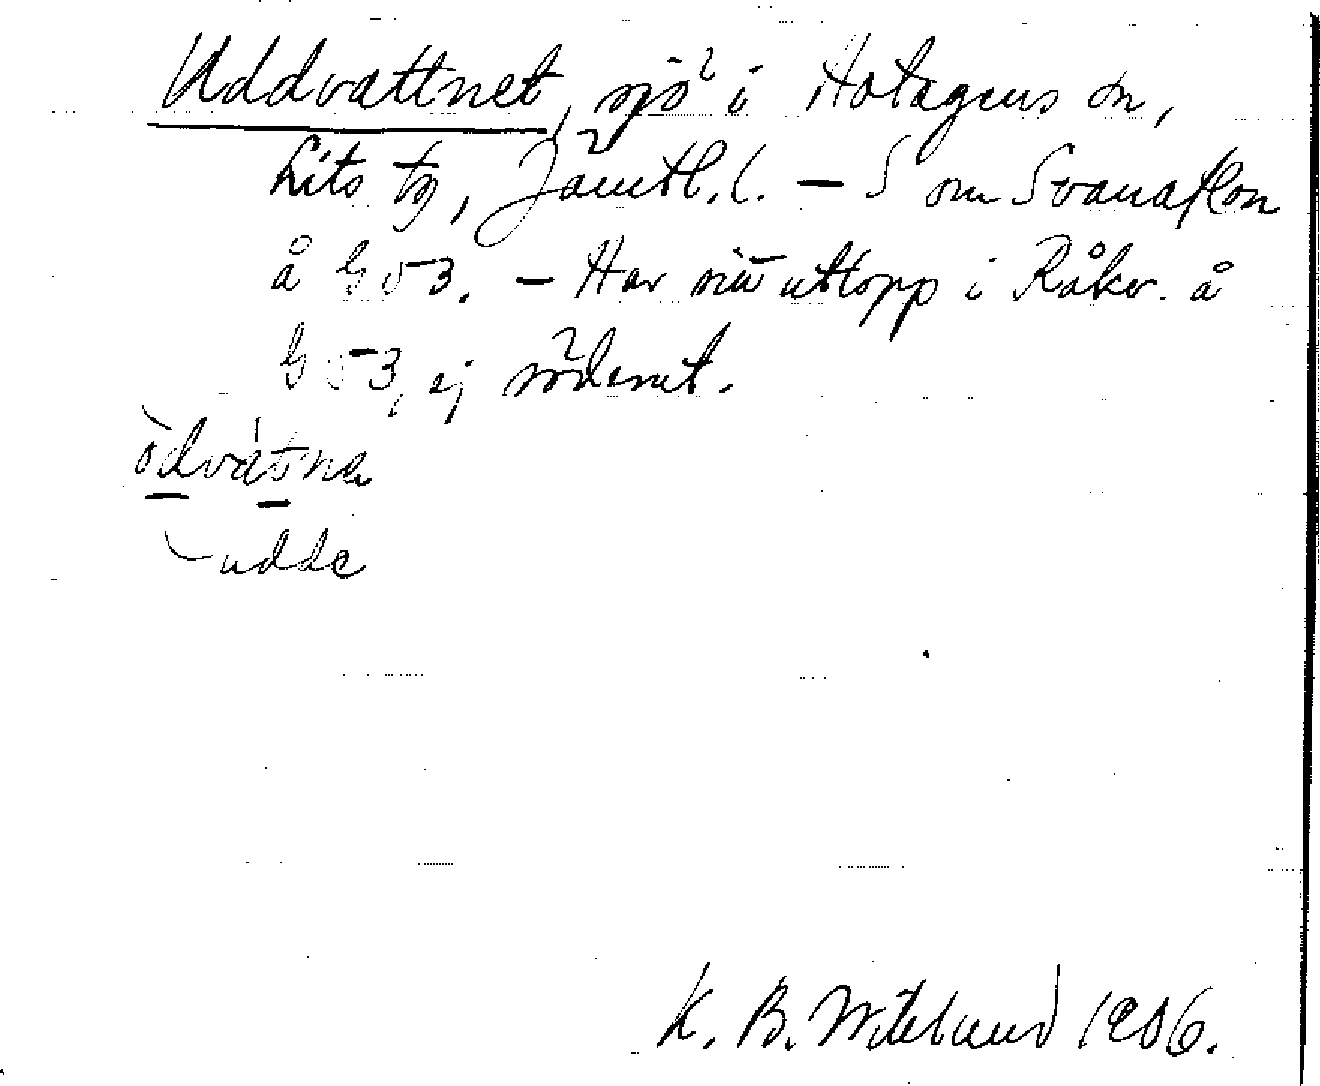 Uddvattnet, sjö i Hotagens sn,
Lits tg, Jämtl. l. – S om Svanaflon
å G 53. – Har sitt utlopp i Råkv. å
G 53, ej söderut.
ödvátna
udde
K. B. Wiklund 1906.